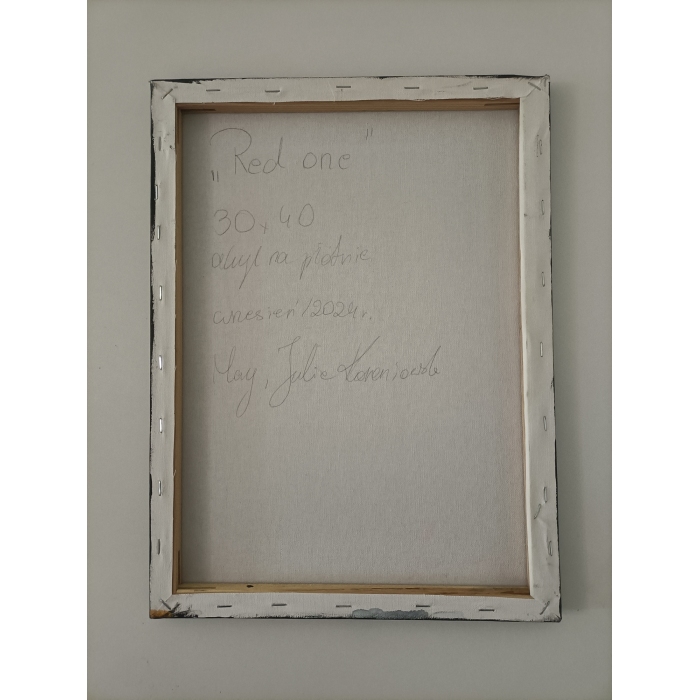 „Red one”
30x40
akryl na płótnie
wrzesień/2024r.
May, Julia Koreniowska